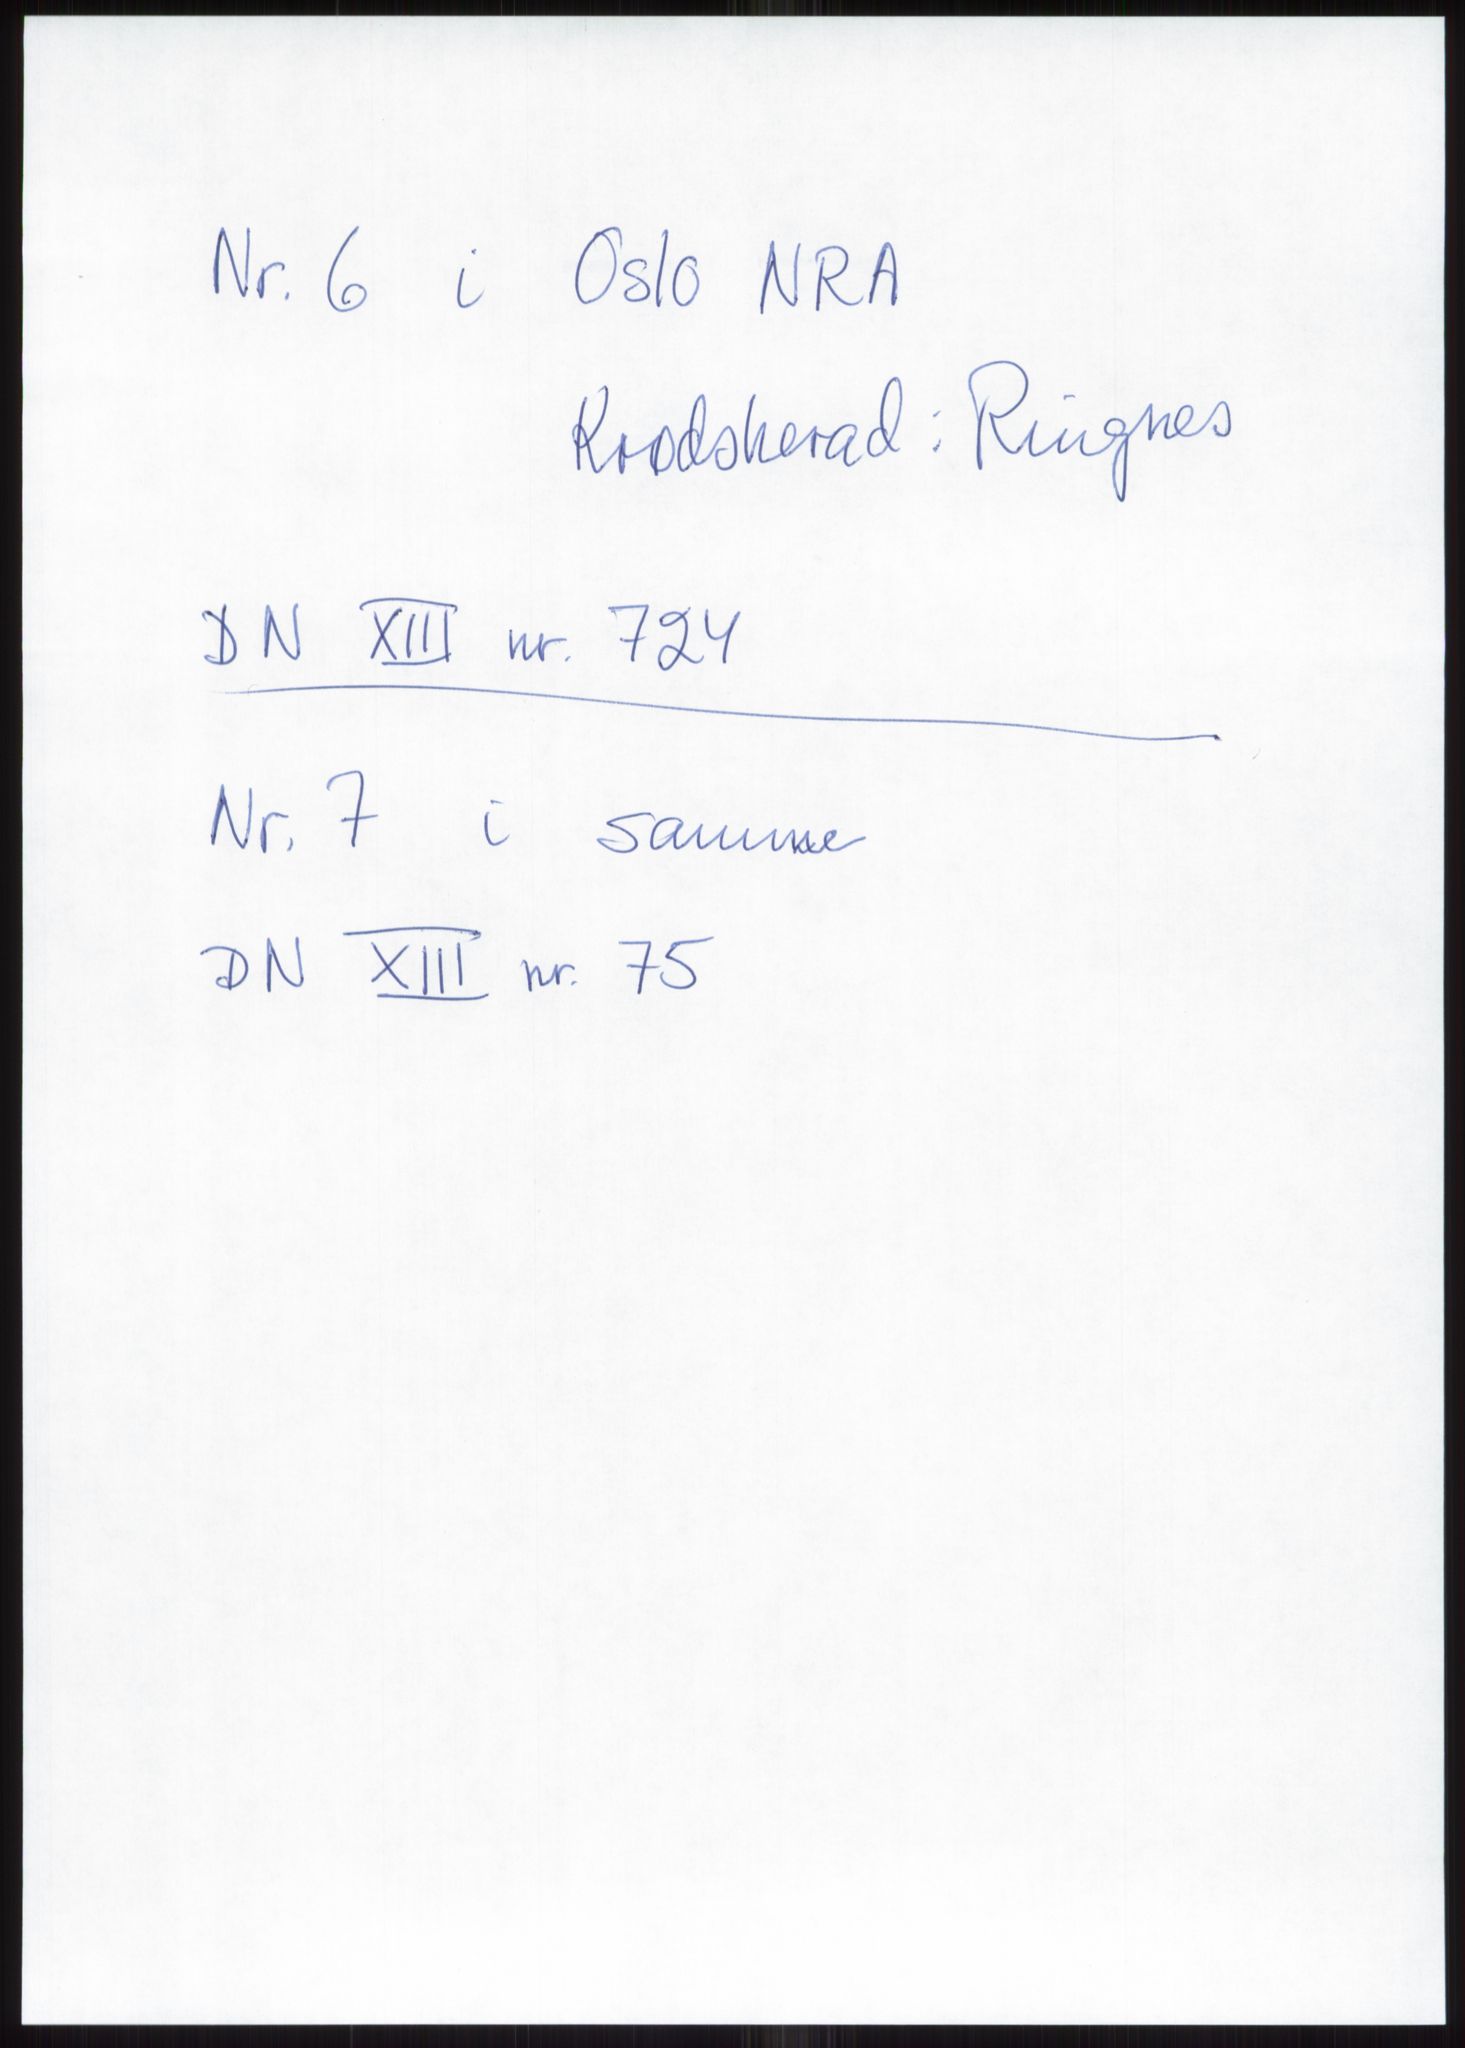 Nr. 6 i Oslo NRA
Krødsherad: Ringnes
DN XIII nr. 724
Nr. 7 i samme
DN XIII nr. 75